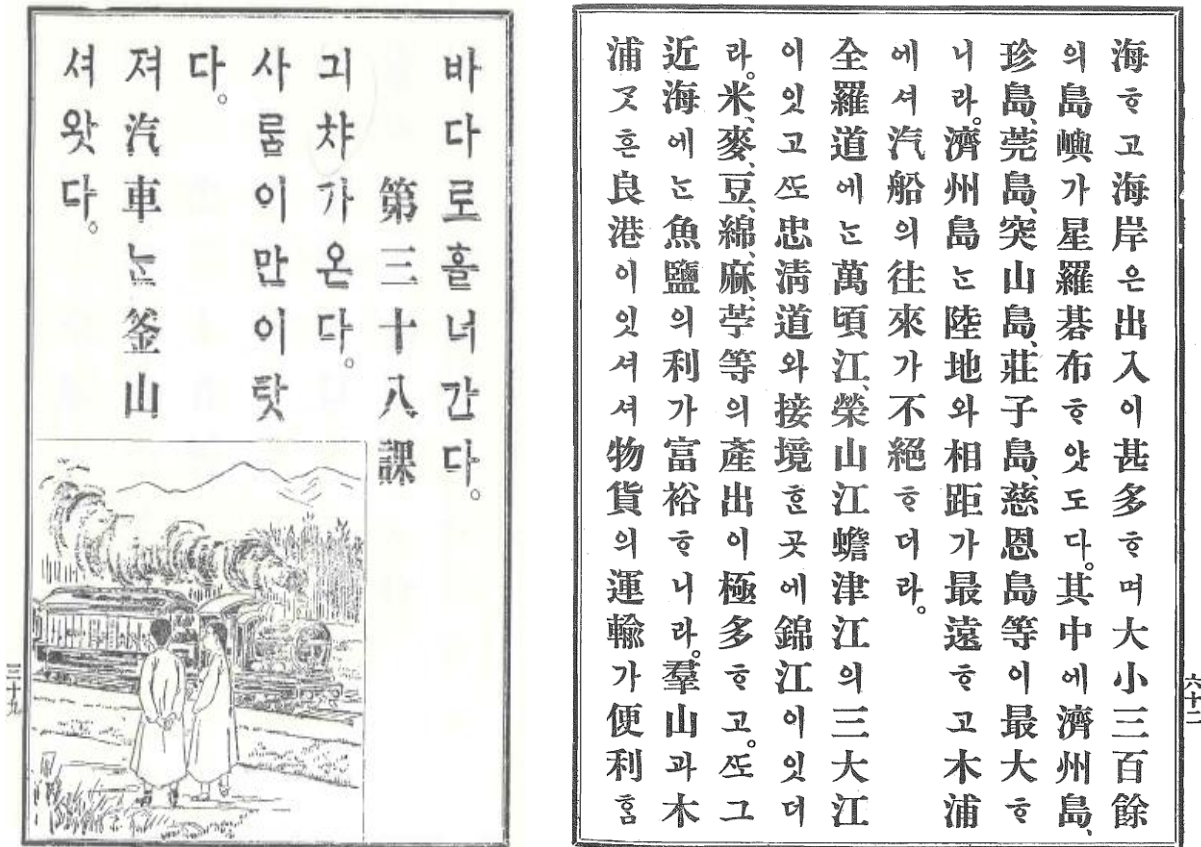 바다로흘너간다。
第三十八課
긔챠가온다。
사ᄅᆞᆷ이만이탓
다。
져汽車ᄂᆞᆫ釜山
셔왓다。
三十九
海ᄒᆞ고海岸은出入이甚多ᄒᆞ며大小三百餘
의島嶼가星羅碁布ᄒᆞ얏도다。其中에濟州島、
珍島、莞島、突山島、莊子島、慈恩島等이最大ᄒᆞ
니라。濟州島ᄂᆞᆫ陸地와相距가最遠ᄒᆞ고木浦
에셔汽船의往來가不絕ᄒᆞ더라。
全羅道에ᄂᆞᆫ萬頃江、榮山江蟾津江의三大江
이잇고ᄯᅩ忠淸道와接境ᄒᆞᆫ곳에錦江이잇더
라。米、麥、豆、綿、麻、苧等의產出이極多ᄒᆞ고。ᄯᅩ그
近海에ᄂᆞᆫ魚鹽의利가富裕ᄒᆞ니라。羣山과木
浦ᄀᆞᆺ흔良港이잇셔셔物貨의運輸가便利ᄒᆞᆷ
六十二